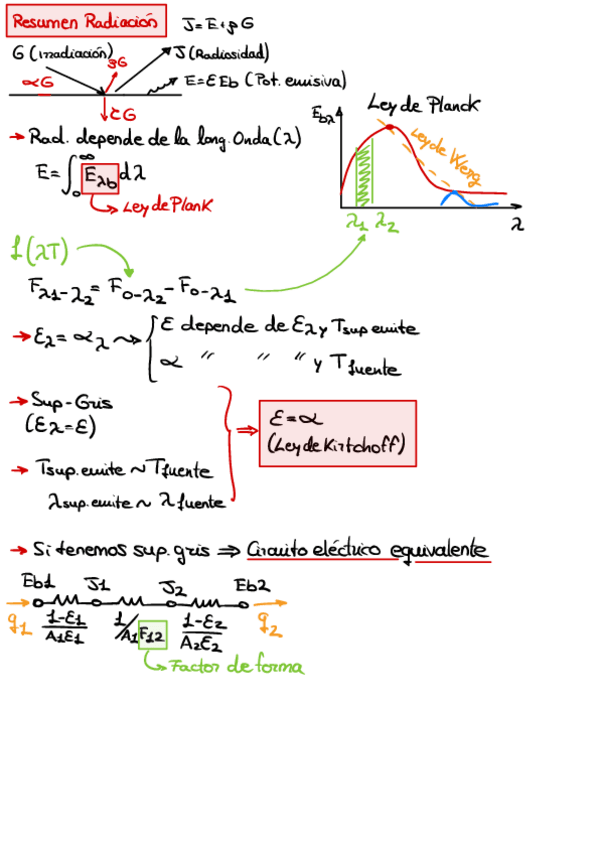 Resumen Radiación
J = E + ρG
G (irradiación)
ρG
J (Radiosidad)
αG
E = εEb (Pot. emisiva)
τG
→ Rad. depende de la long. Onda (λ)
E = ∫₀^∞ Eλb dλ
Ley de Plank
Ebλ
Ley de Planck
Ley de Werg
λ1 λ2
λ
f(λT)
Fλ1-λ2 = F0-λ2 - F0-λ1
→ ελ = αλ ⇝ { ε depende de ελ y Tsup emite
α " " " y Tfuente
→ Sup-Gris
(ελ = ε)
→ Tsup.emite ~ Tfuente
λsup.emite ~ λfuente
⇒ ε = α
(Ley de Kirtchoff)
→ Si tenemos sup. gris ⇒ Circuito eléctrico equivalente
Eb1 J1 J2 Eb2
q1 1-ε1/A1ε1 1/A1F12 1-ε2/A2ε2 q2
Factor de forma